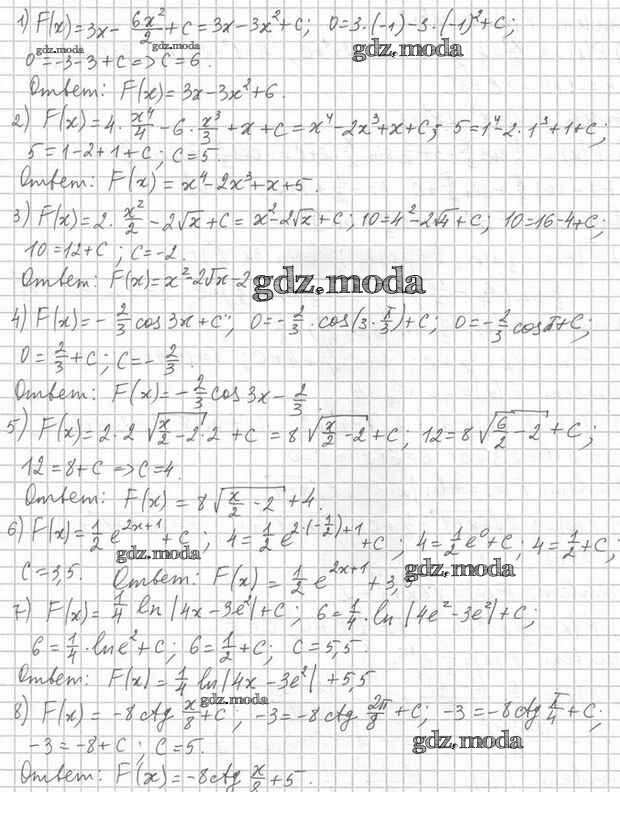 1) F(x)=3x- 6x²/2 +C=3x-3x²+C; 0=3·(-1)-3·(-1)²+C;
gdz.moda
gdz.moda
0=-3-3+C=>C=6.
Ответ: F(x)=3x-3x²+6.
2) F(x)=4·x⁴/4-6·x³/3+x+C=x⁴-2x³+x+C; 5=1⁴-2·1³+1+C;
5=1-2+1+C; C=5.
Ответ: F(x)=x⁴-2x³+x+5.
3) F(x)=2·x²/2-2√x+C=x²-2√x+C; 10=4²-2√4+C; 10=16-4+C;
10=12+C; C=-2.
Ответ: F(x)=x²-2√x-2
gdz.moda
4) F(x)=-2/3 cos3x+C; 0=-2/3·cos(3·π/3)+C; 0=-2/3 cosπ+C;
0=2/3+C; C=-2/3.
Ответ: F(x)=-2/3 cos 3x-2/3.
5) F(x)=2·2√(x/2-2)·2+C=8√(x/2-2)+C; 12=8√(6/2-2)+C;
12=8+C=>C=4.
Ответ: F(x)=8√(x/2-2)+4.
6) F(x)=1/2 e^(2x+1)+C; 4=1/2 e^(2·(-1/2)+1)+C; 4=1/2 e⁰+C; 4=1/2+C;
gdz.moda
C=3,5. Ответ: F(x)=1/2 e^(2x+1)+3,5
gdz.moda
7) F(x)=1/4 ln|4x-3e²|+C; 6=1/4·ln|4e²-3e²|+C;
6=1/4·lne²+C; 6=1/2+C; C=5,5.
Ответ: F(x)=1/4 ln|4x-3e²|+5,5
gdz.moda
8) F(x)=-8ctg x/8+C; -3=-8ctg 2π/8+C; -3=-8ctg π/4+C;
-3=-8+C; C=5.
gdz.moda
Ответ: F(x)=-8ctg x/8+5.